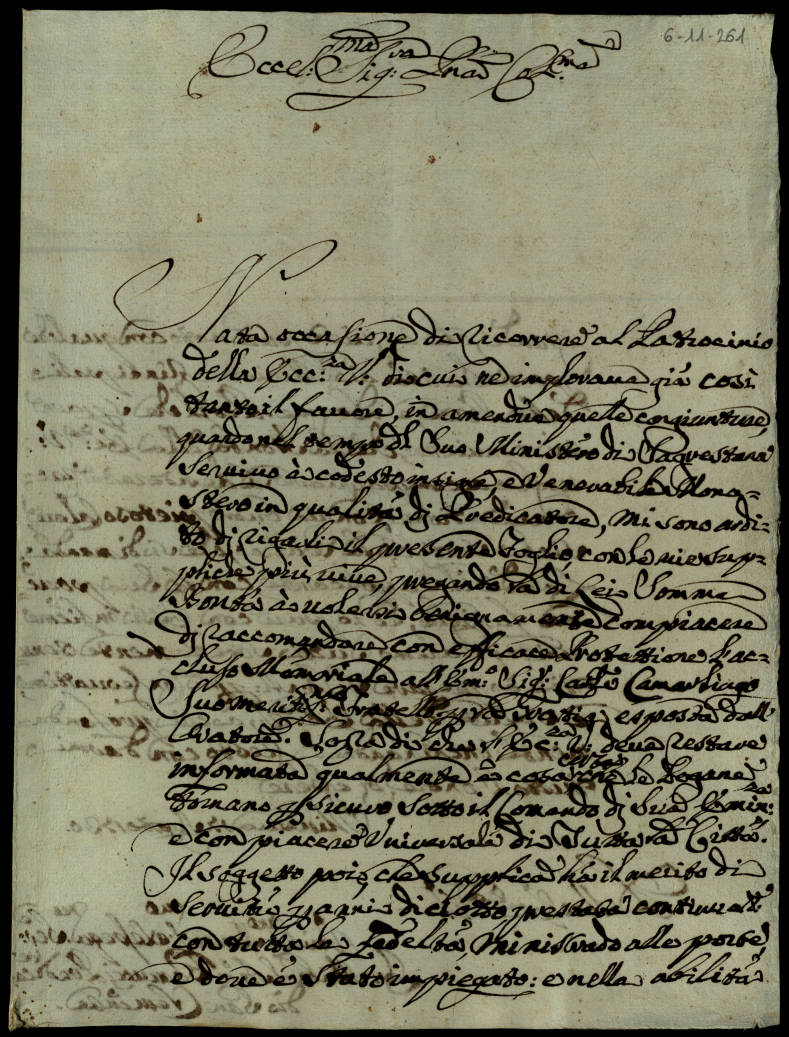 6-11-261
Eccel:ma Sig:ra Pnã Col:ma
Nata occasione di ricorrere al Patrocinio
della Ecc:za V: di cui ne implorava già così
tanto il favore, in amendue quelle congiunture,
quando nel tempo d Suo Ministero di Sagrestana
servivo à codesto insigne e Venerabile Mona=
stero in qualità di Predicatore, mi sono ardi=
to di il presente foglio, con le mie sup=
pliche più vive, pregando la di Lei Somma
Bontà à volersi benignamente compiacere
di raccomandare con efficace Protettione l'ac=
cluso Memoriale all' Em:o Sig:
Suo Fratello esposta dall'
Oratore. di che l'Ecc:za V: deve restare
informata qualmente è cosa certa che le Dogane
tornano sicuro sotto il Comando di Sua Emin:za
e con piacere Universale di Tutta la Città.
Il soggetto poi, che supplica hà il merito di
servitù anni diciotto prestata continuat:e
con tutta la fedeltà, Ministrado alle porte,
e dove è stato impiegato: e nella abilità